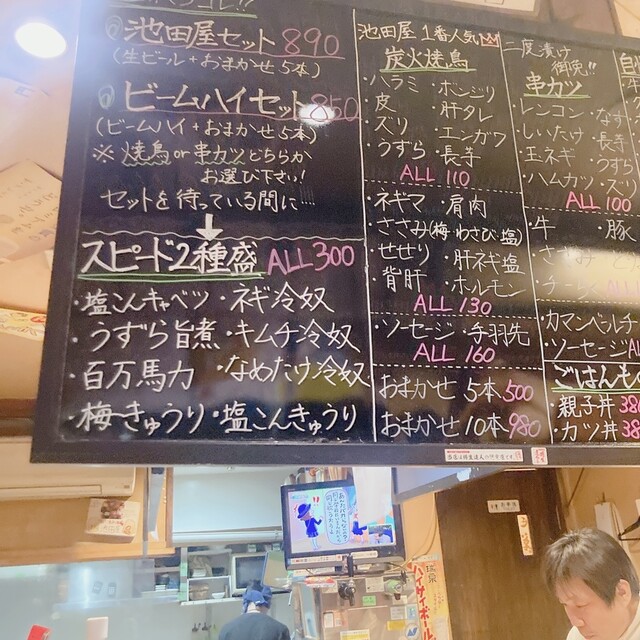 池田屋セット 890
(生ビール+おまかせ5本)
ビームハイセット 850
(ビームハイ+おまかせ5本)
※焼鳥or串カツどちらか
お選び下さい!
セットを待っている間に…
スピード2種盛 ALL 300
・塩こんキャベツ ・ネギ冷奴
・うずら旨煮 ・キムチ冷奴
・百万馬力 ・なめたけ冷奴
・梅きゅうり ・塩こんきゅうり
池田屋1番人気
炭火焼鳥
・ハラミ ・ボンジリ
・皮 ・肝タレ
・ズリ ・エンガワ
・うずら ・長芋
ALL 110
・ネギマ ・肩肉
・ささみ(梅・わさび・塩)
・せせり ・肝ネギ塩
・背肝 ・ホルモン
ALL 130
・ソーセージ ・手羽先
ALL 160
おまかせ 5本 500
おまかせ 10本 980
二度漬け
御免!!
串カツ
・レンコン ・なす
・しいたけ ・長芋
・玉ネギ ・うずら
・ハムカツ ・ズリ
ALL 100
・牛 ・豚
・カマンベールチ
・ソーセージ AL
ごはんもの
・親子丼 38
・カツ丼 38
ハイサイボール